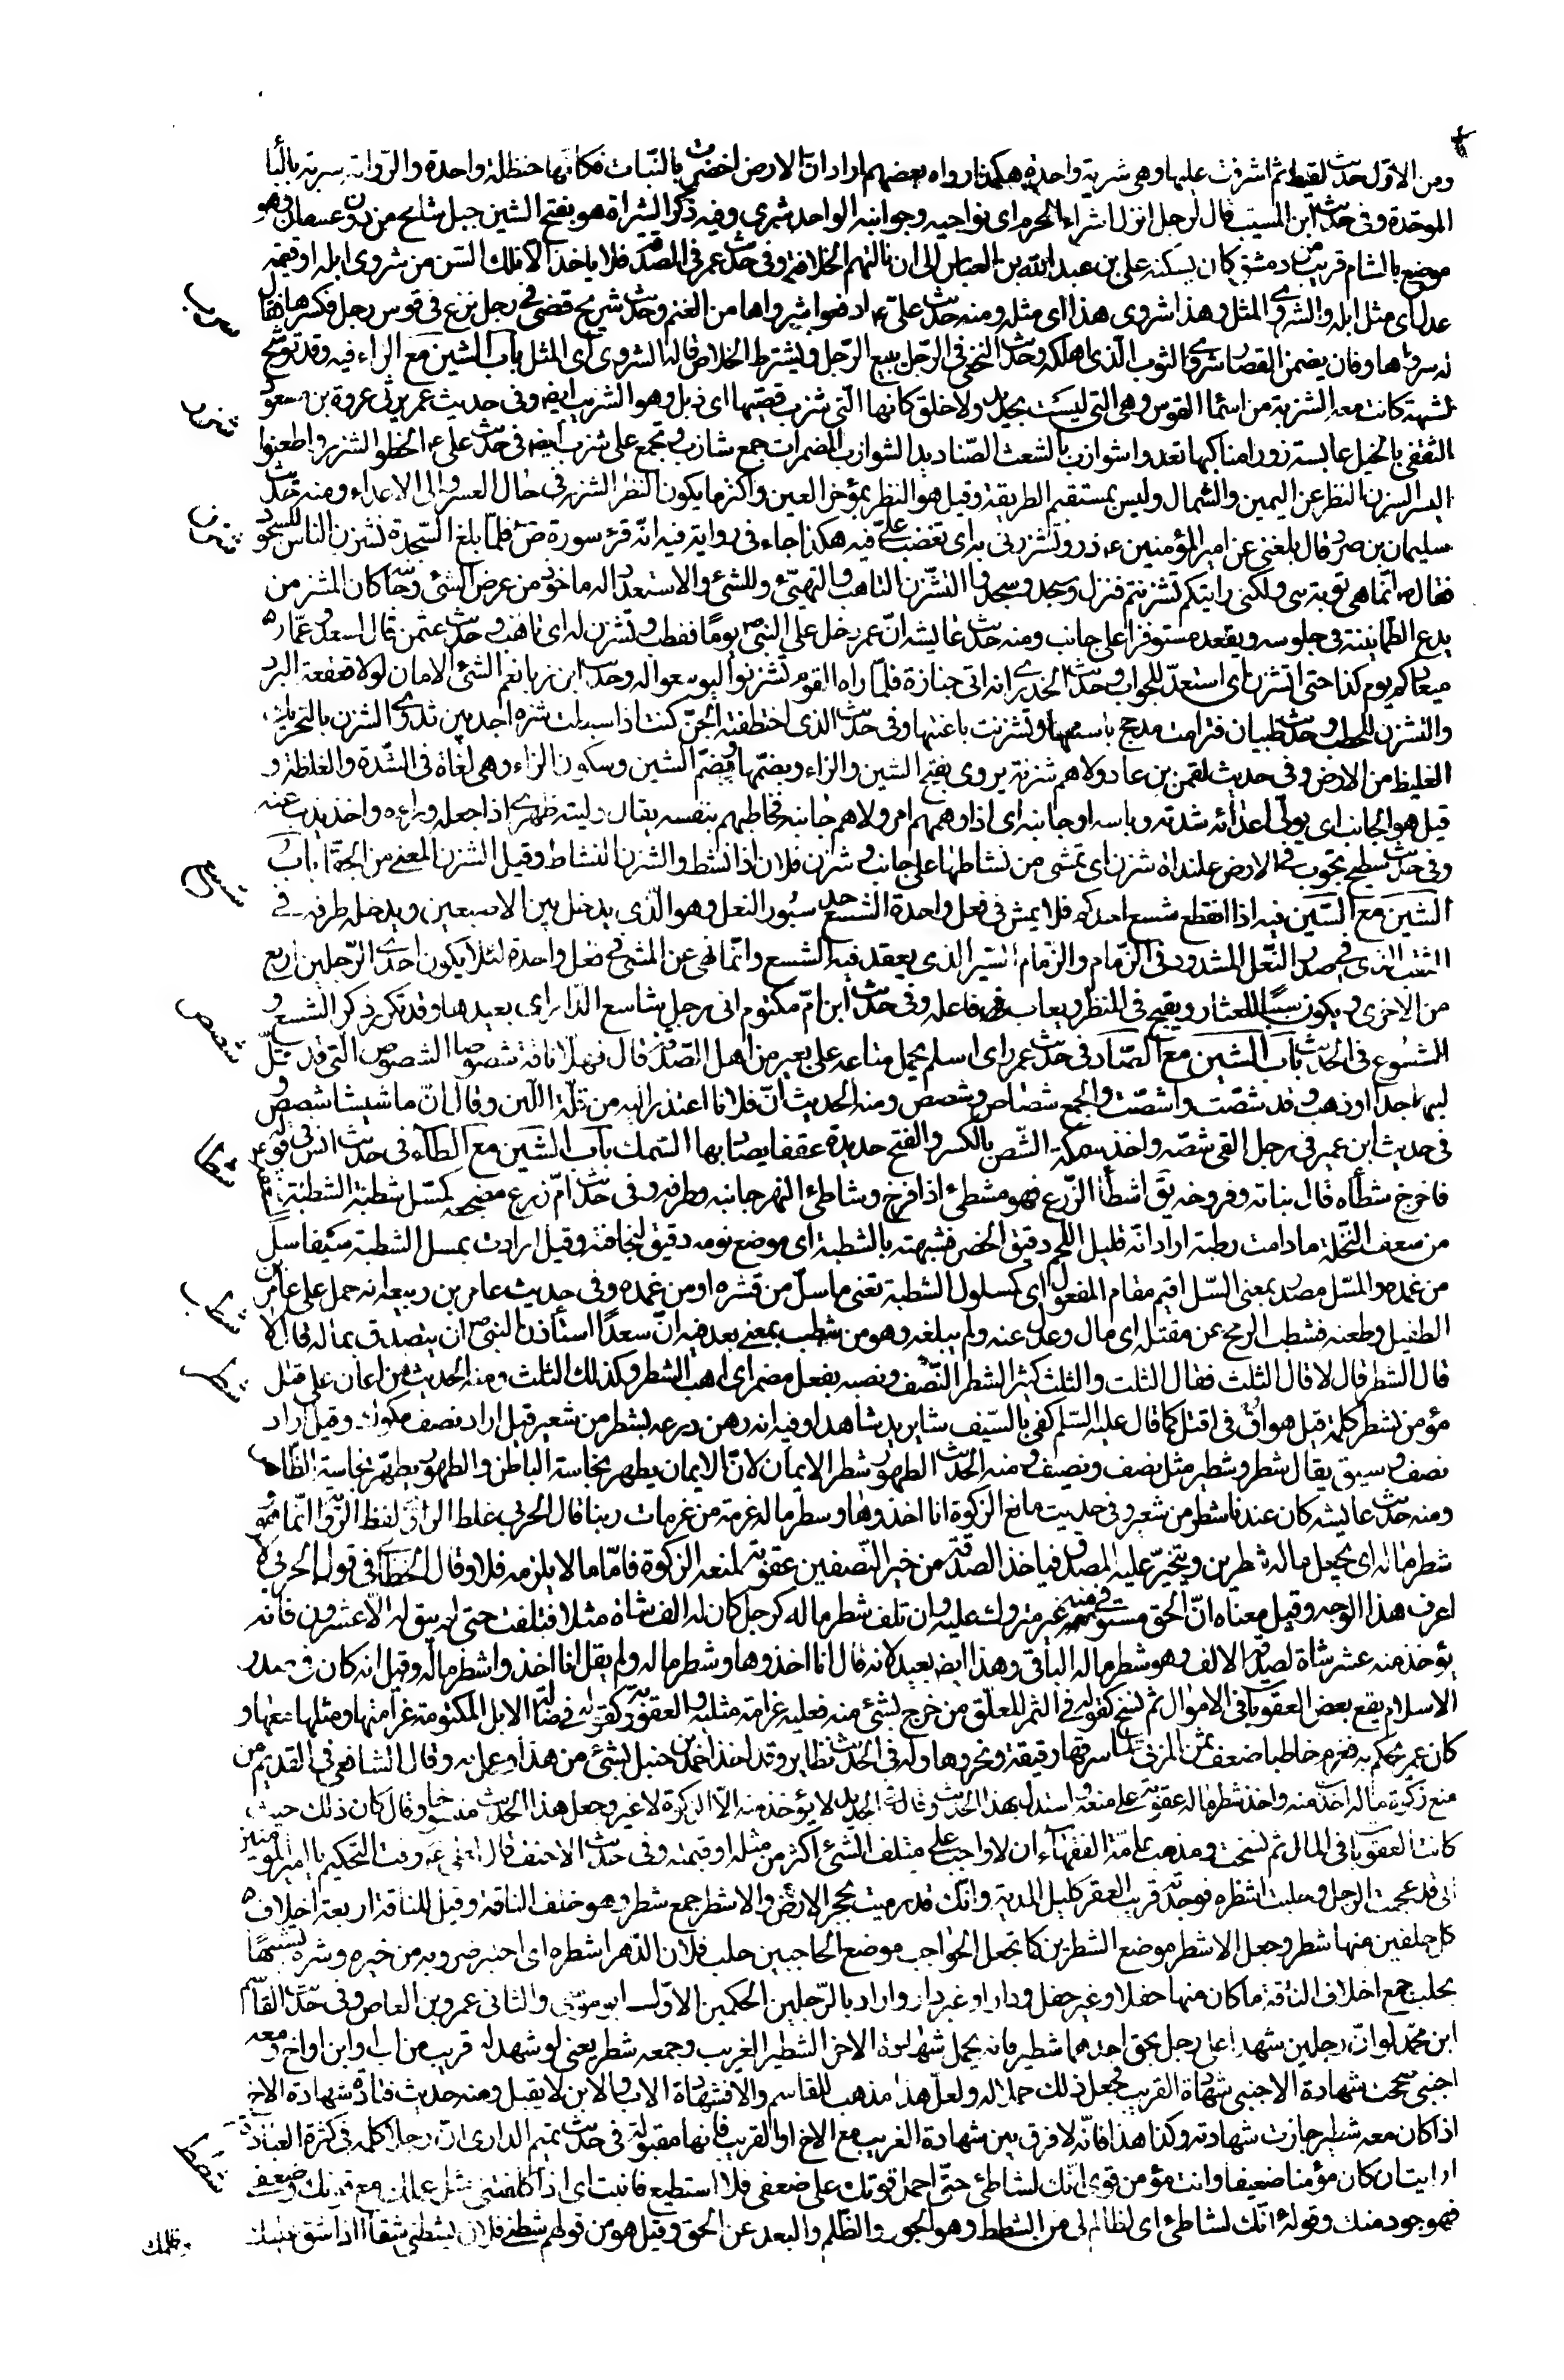 ومن الاوّل حديث لقيط ثم اشرفت عليها وهى شربة واحدة هكذا رواه بعضهم اراد ان الارض اخضرت بالنّبات فكانها حنظلة واحدة والرّواية شربة بالبا
الموحّدة وفى حديث ابن المسيب قال لرجل انزل اشراء الحرم اى نواحيه وجوانبه الواحد شرى وفيه ذكر الشراة هو بفتح الشين جبل شامخ من دون عسفان وهو
موضع بالشام قريب من دمشق كان يسكنه على بن عبد الله بن العباس الى ان نالتهم الخلافة وفى حديث عمر فى الصدقة فلا ياخذ الا تلك السن من شروى ابله او قيمة
عدل اى مثل ابله والشروى المثل وهذا شروى هذا اى مثله ومنه حديث علىّ ادفعوا شرواها من الغنم وحديث شريح قضى فى رجل نزع فى قوس رجل فكسرها فقال
له شرواها وفان يضمن القصار شروى الثوب الّذى اهلكه وحديث النخعى فى الرّجل يبيع الرّجل ويشترط الخلاص قال له الشروى اى المثل باب الشين مع الزاء فيه وقد توشّح
بشربة كانت معه الشزبة من اسماء القوس وهى التى ليست بجديد ولا خلق كانها الّتى شزب قضيبها اى ذبل وهو الشزيب ايضه وفى حديث عمر يرثى عروة بن مسعود
الثقفى بالخيل عابسة زورا مناكبها تعدو اشوازب بالشعث الصّناديد الشوازب المضمرات جمع شازب ويجمع على شزب ايضه فى حديث على ع الحظوا الشزر واطعنوا
اليسر الشزر النظر عن اليمين والشمال وليس بمستقيم الطريقة وقيل هو النظر بمؤخر العين واكثر ما يكون النظر الشزر فى حال الغضب والى الاعداء ومنه حديث
سليمان بن صرد قال بلغنى عن امير المؤمنين ع ذرو تشزر لى به اى تغضب علىّ فيه هكذا جاء فى رواية فيه انّه قرء سورة صَ فلمّا بلغ السّجدة تشزن الناس للسجود
فقال ص انّما هى توبة نبى ولكنى رايتكم تشزنتم فنزل وسجد وسجدوا التشزّن التاهب والتهيّئ للشئ والاستعداد له ماخوذ من عرض الشئ وجانبه كان المتشزن
يدع الطمانينة فى جلوسه ويقعد مستوفزا على جانب ومنه حديث عايشه انّ عمر دخل على النبى ص يومًا فقطب وتشزن له اى تاهب وحديث عثمن قال لسعد وعمّار
ميعادكم يوم كذا حتى اتشزن اى استعدّ للجواب وحديث الخدرى انه اتى جنازة فلمّا راه القوم تشزنوا ليوسعوا له وحديث ابن زياد نعم الشئ الامارة لولا قعقعة البرد
والتشزن للخطب وحديث ظبيان فترامت مدحج باسنتها وتشزنت باعنتها وفى حديث الذى اختطفته الجنّ كنت اذا هبطت شزنا اجد بين ثدوتى الشزن بالتحريك
الغليظ من الارض وفى حديث لقمن بن عاد وولاهم شزنة يروى بفتح الشين والزاء وبضمّها وبضمّ الشين وسكون الزاء وهى لغاة فى الشّدة والغلظة و
قيل هو الجانب اى يولّى اعدائه شدته وباسه او جانبه اى اذا دهمهم امر ولاهم جانبه فحاطهم بنفسه يقال وليته ظهرى اذا جعله وراءه واخذ يذب عنه
وفى حديث سطيح تجوب فى الارض علنداة شزن اى تمشى من نشاطها على جانب وشزن فلان اذا نشط والشزن النشاط وقيل الشزن المعيى من الحفا باب
الشين مع السّين فيه اذا انقطع شسع احدكم فلا يمش فى نعل واحدة الشسع احد سيور النعل وهو الّذى يدخل بين الاصبعين ويدخل طرفه فى
الثقب الذى فى صدر النّعل المشدود فى الزّمام والزّمام السّير الذى يعقد فيه الشسع وانّما نهى عن المشى فى نعل واحدة لئلا يكون احدى الرّجلين ارفع
من الاخرى ويكون سببًا للعثار ويقبح فى المنظر ويعاب فاعله وفى حديث ابن امّ مكتوم انى رجل شاسع الدّار اى بعيدها وقد تكرر ذكر الشسع و
الشسوع فى الحديث باب الشين مع الصّاد فى حديث عمر راى اسلم يحمل متاعه على بعير من اهل الصّدقة قال فهلّا ناقة شصوصا الشصوص التى قد قلّ
لبنها جدّا او ذهب وقد شصّت واشصّت والجمع شصائص وشصص ومنه الحديث انّ فلانا اعتذر اليه من قلّة اللبن وقال انّ ماشيتنا شصص و
فى حديث ابن عمير فى رجل القى شصّه واخذ سمكة الشّص بالكسر والفتح حديدة عقفا يصاد بها السّمك باب الشين مع الطاء فى حديث انس فى قوله تع
فاخرج شطأه قال نباته وفروخه يقَ اشطأ الزّرع فهو مشطئ اذا فرخ وشاطئ النهر جانبه وطرفه وفى حديث امّ زرع مضجعه كمسل شطبة الشطبة السعفة
من سعف النّخلة ما دامت رطبة ارادت انّه قليل اللحم دقيق الخصر فشبهته بالشطبة اى موضع نومه دقيق لنحافته وقيل ارادت بمسل الشطبة سيفا سلّ
من غمده والمسّل مصدر بمعنى السّل اقيم مقام المفعول اى كمسلول الشطبة تعنى ما سلّ من قشره او من غمده وفى حديث عامر بن ربيعة انه حمل على عامر بن
الطفيل وطعنه فشطب الرمح عن مقتله اى مال وعدل عنه ولم يبلغه وهو من شطب بمعنى بعد فيه انّ سعدًا استأذن النبى ص ان يتصدق بماله قال لا
قال الشطر قال لا قال الثلث فقال الثلث والثلث كثير الشطر النّصف ونصبه بفعل مضمر اى اهب الشطر وكذلك الثلث ومنه الحديث من اعان على قتل
مؤمن بشطر كلمة قيل هو اقْ فى اقتل كما قال عليه السّلم كفى بالسّيف شا يريد شاهدا وفيه انه رهن درعه بشطر من شعير قيل اراد نصف مكوك وقيل اراد
نصف وسق يقال شطر وشطير مثل نصف ونصيف ومنه الحديث الطهور شطر الايمان لانّ الايمان يطهر نجاسة الباطن والطهور يطهّر نجاسة الظّاهر
ومنه حديث عايشه كان عندنا شطر من شعير وفى حديث مانع الزكوة انا اخذوها وشطر ماله عزمة من عزمات ربنا قال الحربى غلط الراوى لفظ الرّواية انّما هو
شطر ماله اى يجعل ماله شطرين ويتخيّر عليه المصدّق فياخذ الصدقة من خير النّصفين عقوبة لمنعه الزكوة فامّا ما لا يلزمه فلا وقال الخطابى فى قول الحربى لا
اعرف هذا الوجه وقيل معناه انّ الحق مستوفى منه غير متروك عليه وان تلف شطر ماله كرجل كان له الف شاة مثلا فتلفت حتى لم يبق له الّا عشرون فانه
يؤخذ منه عشر شاة لصدقة الالف وهو شطر ماله الباقى وهذا ايضه بعيد لانه قال انا اخذوها وشطر ماله ولم يقل انا اخذوا شطر ماله وقيل انه كان فى صدر
الاسلام يقع بعض العقوبات فى الاموال ثم نسخ كقوله فى الثمر المعلّق من خرج بشئ منه فعليه غرامة مثليه والعقوبة وكقوله فى ضالّة الابل المكتومة غرامتها ومثلها معها و
كان عمر يحكم به فغرم حاطبا ضعف ثمن ناقة المزنى لما سرقها رقيقة ونحروها وله فى الحديث نظاير وقد اخذ احمد بن حنبل بشئ من هذا وعمل به وقال الشافعى فى القديم من
منع زكوة ماله اخذت منه واخذ شطر ماله عقوبة على منعه واستدل بهذا الحديث وقال فى الجديد لا يؤخذ منه الّا الزكوة لا غير وجعل هذا الحديث منسوخا وقال كان ذلك حيث
كانت العقوبات فى المال ثم نسخت ومذهب عامّة الفقهاء ان لا واجب على متلف الشئ اكثر من مثله او قيمته وفى حديث الاحنف قال لعلى ع وقت التّحكيم يا امير المؤمنين
انى قد عجمت الرجل وحلبت اشطره فوجدته قريب القعر كليل المدية وانّك قد رميت بحجر الارض والاشطر جمع شطر وهو خلف الناقة وقيل للناقة اربعة اخلاف
كل خلفين منها شطر وجعل الاشطر موضع الشطرين كما تجعل الحواجب موضع الحاجبين حلب فلان الدّهر اشطره اى اختبر ضروبه من خيره وشره تشبيهًا
بحلب جمع اخلاف الناقة ما كان منها حفلا وغير حفل ودارا وغير دار واراد بالرّجلين الحكمين الاوّل ابو موسى والثانى عمرو بن العاص وفى حديث القاسم
ابن محمّد لو انّ رجلين شهدا على رجل بحق احدهما شطير فانه يحمل شهادة الاخر الشطير الغريب وجمعه شطر يعنى لو شهد له قريب من اب وابن او اخ ومعه
اجنبى صحت شهادة الاجنبى شهادة القريب فجعل ذلك حملا له ولعلّ هذا مذهب للقاسم والا فشهادة الاب والابن لا يقبل ومنه حديث قتادة شهادة الاخ
اذا كان معه شطير جازت شهادته وكذا هذا فانّه لا فرق بين شهادة الغريب مع الاخ او القريب فانها مقبولة فى حديث تميم الدارى انّ رجلا كلمه فى كثرة العبادة
ارايت ان كان مؤمنا ضعيفا وانت مؤمن قوى انّك لشاطئ حتّى احمل قوتك على ضعفى فلا استطيع فانبت اى اذا كلفتنى مثل عملك مع قوتك وضعفى
فهو جود منك وقوله انّك لشاطئ اى لظالم لى من الشطط وهو الجور والظّلم والبعد عن الحق وقيل هو من قولهم شطنى فلان يشطنى شقا اذا شق عليك
وظلمك
شزب
شزن
شسع
شصص
شطا
شطب
شطر
شطط